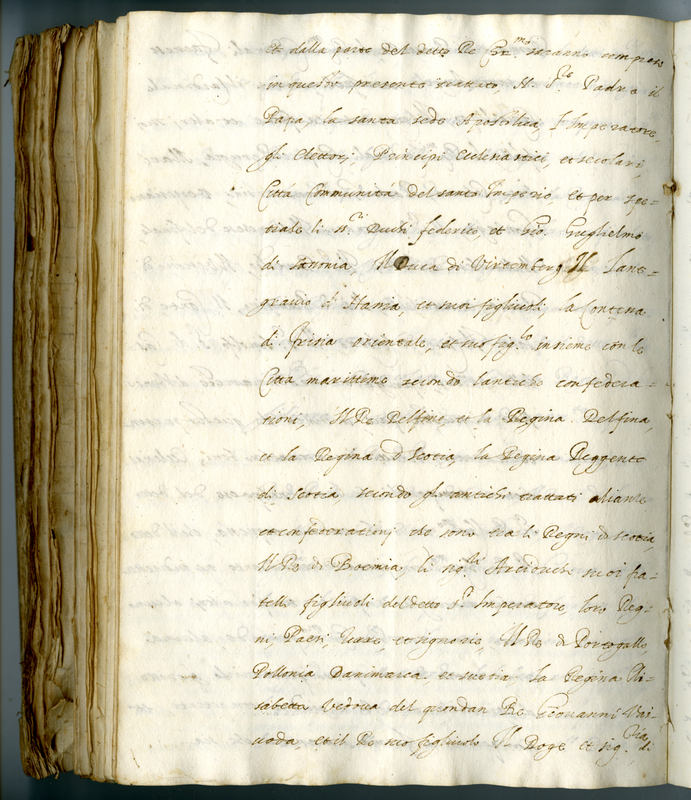 Et dalla parte del detto Re Chr.mo saranno compresi
in questo presente trattato, Il S.to Padre il
Papa, la santa sede Apostolica, l'Imperatore,
gli Elettori, Principi Eclesiastici, et secolari,
Citta Communità del santo Imperio, et per spe=
tiale li S.ri Duchi federico, et Gio. Guglielmo
di Sassonia, Il Duca di Virtemberg Il Lant=
gravio d'Hassia, et suoi figliuoli, la Contessa
di frisia orientale, et suo fig.lo insieme con le
Citta marittime secondo l'antiche confedera=
tioni, Il Re Delfino, et la Regina Delfina,
et la Regina di Scotia, la Regina Reggente
di Scotia, secondo gl'antichi trattati alianze
et confederationi che sono tra li Regni di scotia,
Il Re di Boemia, li sig.ri Arciduchi suoi fra=
telli figliuoli del detto S.r Imperatore loro Reg=
ni, Paesi, terre, et signorie, Il Re di Portogallo
Pollonia Danimarca, et suetia, la Regina Eli=
sabetta vedova del quondan Re Giovanni Vai=
voda, et il Re suo figliuolo Il Doge et sig.ria di